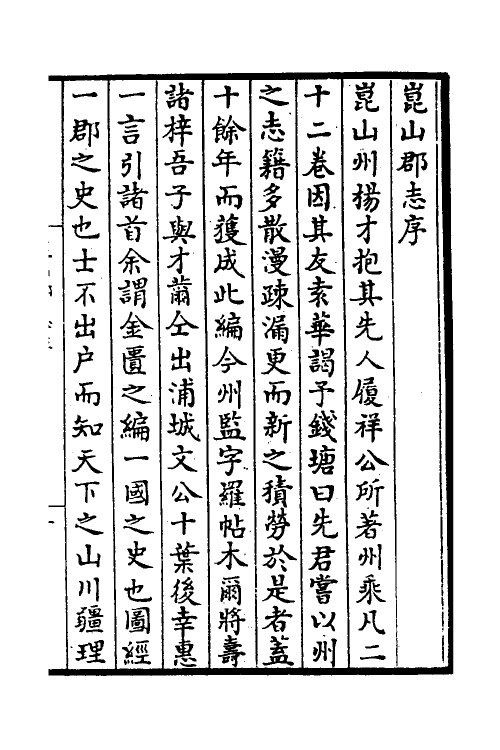 崑山郡志序
崑山州楊才抱其先人履祥公所著州乘凡二
十二卷因其友袁華謁予錢塘曰先君嘗以州
之志籍多散漫疎漏更而新之積勞於是者蓋
十餘年而獲成此編今州監字羅帖木爾將壽
諸梓吾子與才蕭仝出浦城文公十葉後幸惠
一言引諸首余謂金匱之編一國之史也圖經
一郡之史也士不出户而知天下之山川疆理